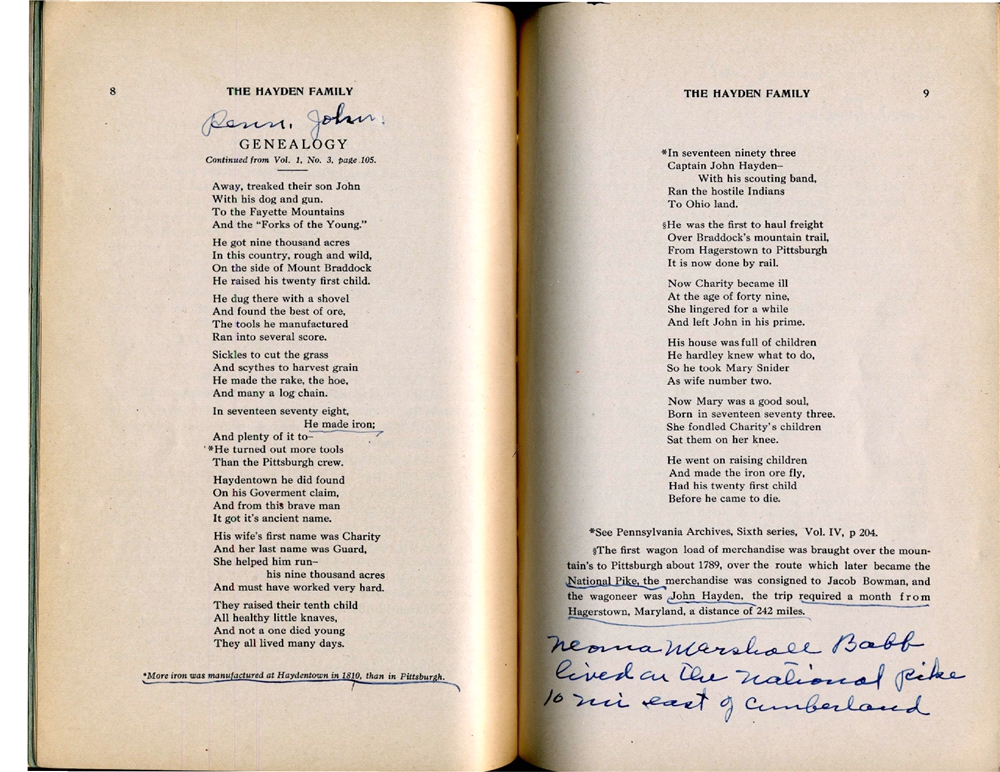 8 THE HAYDEN FAMILY
Penn. John.
GENEALOGY
Continued from Vol. 1, No. 3, page 105.
Away, treaked their son John
With his dog and gun.
To the Fayette Mountains
And the “Forks of the Young.”
He got nine thousand acres
In this country, rough and wild,
On the side of Mount Braddock
He raised his twenty first child.
He dug there with a shovel
And found the best of ore,
The tools he manufactured
Ran into several score.
Sickles to cut the grass
And scythes to harvest grain
He made the rake, the hoe,
And many a log chain.
In seventeen seventy eight,
He made iron;
And plenty of it to—
*He turned out more tools
Than the Pittsburgh crew.
Haydentown he did found
On his Goverment claim,
And from this brave man
It got it's ancient name.
His wife's first name was Charity
And her last name was Guard,
She helped him run—
his nine thousand acres
And must have worked very hard.
They raised their tenth child
All healthy little knaves,
And not a one died young
They all lived many days.
*More iron was manufactured at Haydentown in 1810, than in Pittsburgh.
THE HAYDEN FAMILY 9
*In seventeen ninety three
Captain John Hayden—
With his scouting band,
Ran the hostile Indians
To Ohio land.
§He was the first to haul freight
Over Braddock's mountain trail,
From Hagerstown to Pittsburgh
It is now done by rail.
Now Charity became ill
At the age of forty nine,
She lingered for a while
And left John in his prime.
His house was full of children
He hardley knew what to do,
So he took Mary Snider
As wife number two.
Now Mary was a good soul,
Born in seventeen seventy three.
She fondled Charity's children
Sat them on her knee.
He went on raising children
And made the iron ore fly,
Had his twenty first child
Before he came to die.
*See Pennsylvania Archives, Sixth series, Vol. IV, p 204.
§The first wagon load of merchandise was braught over the moun-
tain's to Pittsburgh about 1789, over the route which later became the
National Pike, the merchandise was consigned to Jacob Bowman, and
the wagoneer was John Hayden, the trip required a month from
Hagerstown, Maryland, a distance of 242 miles.
Neoma Marshall Babb
lived on the National pike
10 mi east of Cumberland